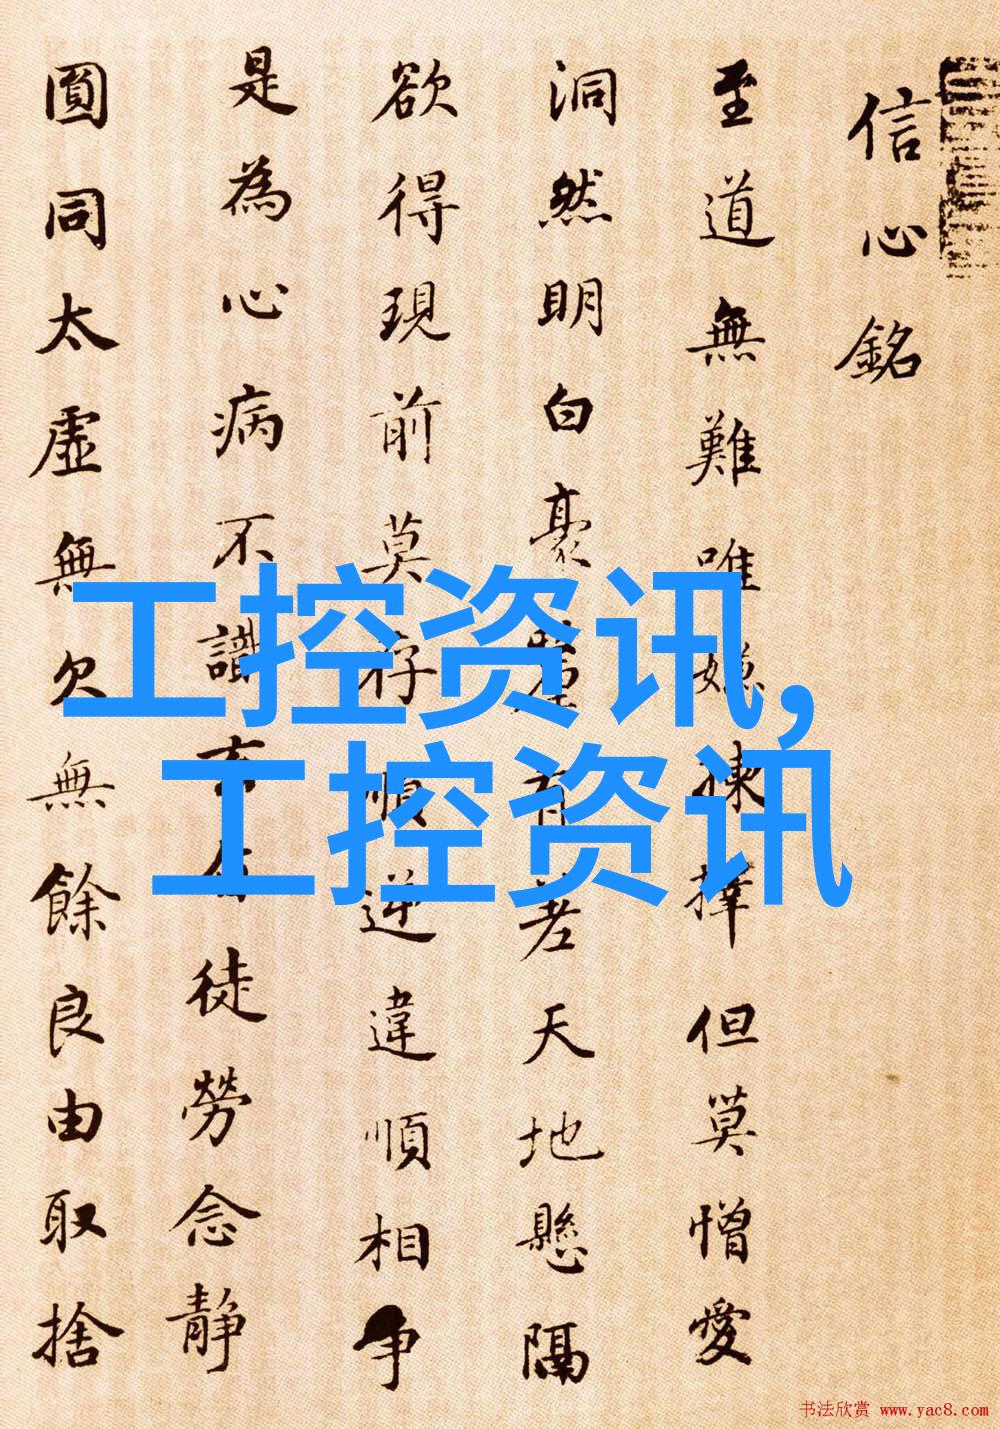 信心銘
至道無難唯嫌揀擇但莫憎愛
洞然明白豪釐有差天地懸隔
欲得現前莫存順逆違順相争
是為心病不識玄旨徒勞念静
圓同太虛無欠無餘良由取捨
工控资讯,
工控资讯
书法欣赏 www.yac8.com